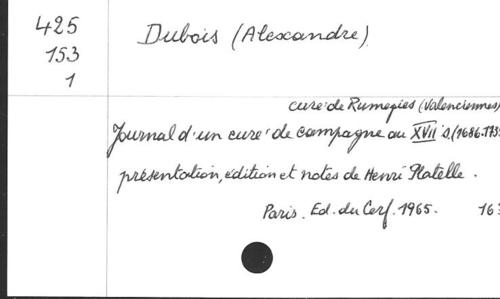 425
153
1
Dubois (Alexandre)
curé de Rumegies (Valenciennes)
Journal d'un curé de campagne au XVII s. (1686-173
présentation, édition et notes de Henri Platelle.
Paris. Ed. du Cerf. 1965. 16